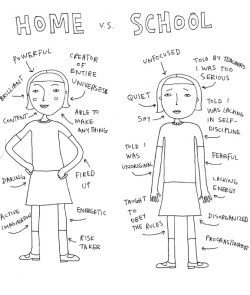 HOME V.S. SCHOOL
POWERFUL
CREATOR
OF
ENTIRE
UNIVERSES
BRILLIANT
CONTENT
ABLE TO
MAKE
ANYTHING
DARING
FIRED
UP
ACTIVE
IMAGINATION
ENERGETIC
RISK
TAKER
UNFOCUSED
TOLD BY TEACHERS
I WAS TOO
SERIOUS
QUIET
SHY
TOLD I
WAS LACKING
IN SELF-
DISCIPLINE
TOLD I
WAS
UNORIGINAL
FEARFUL
LACKING
ENERGY
TAUGHT
TO
OBEY
THE RULES
DISORGANIZED
PROCRASTINATOR